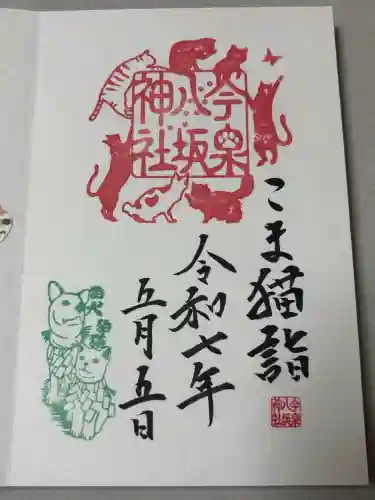 今泉
八坂
神社
こま猫詣
令和七年
五月五日
狛犬
狛猫
今泉
八坂
神社